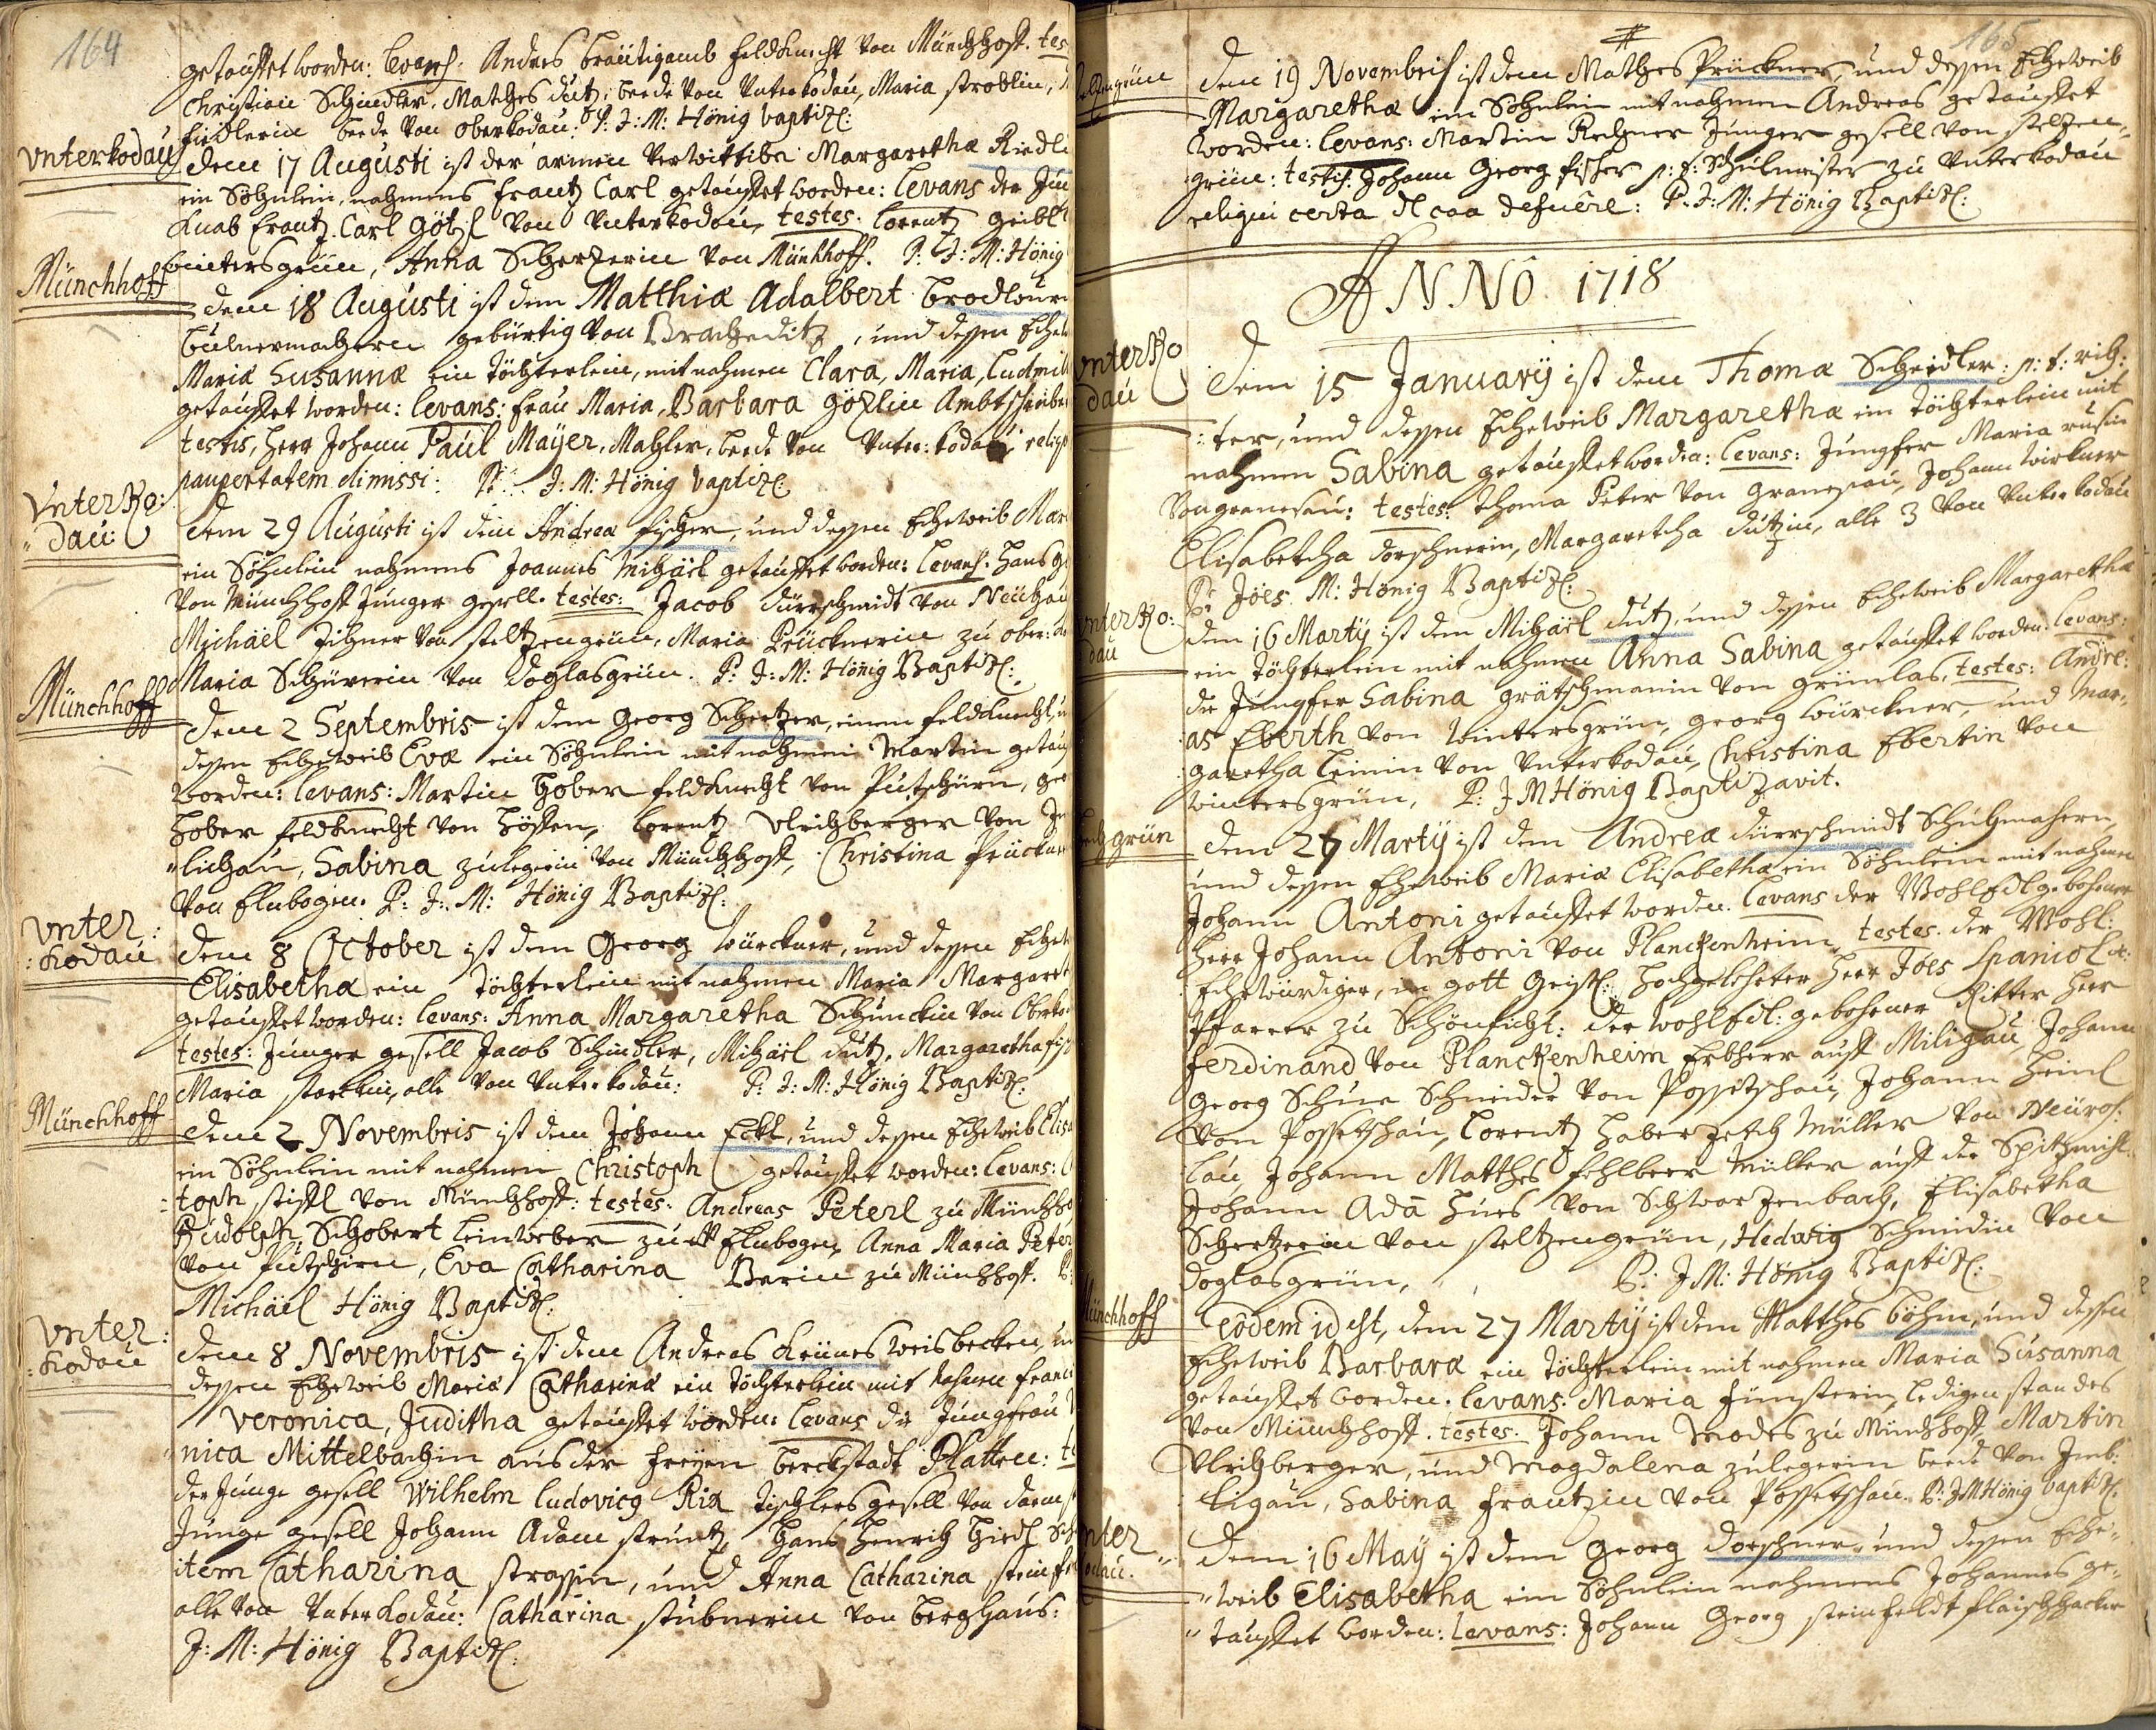 164
getauffet worden: Levans: Andres breütigamb feldknecht von Münchhoff. tes
Christian Schindler, Mathes dutz, beede von Unterkodau, Maria stroblin,
fiedlerin beede von oberkodau. P: J: M: Hönig baptiz:
Unterkodau
dem 17 Augusti ist der armen verwittiben Margaretha Riedl
ein Söhnlein, nahmens frantz Carl getauffet worden: Levans der Jun
Knab frantz Carl Götzl von Unterkodau, testes. Lorentz
wintersgrün, Anna Schertzerin von Münchhoff. P: J: M: Hönig
Münchhoff
dem 18 Augusti ist dem Matthiæ Adalbert
gebürtig von , und dessen Ehe
Mariæ Susannæ ein Töchterlein, mit nahmen Clara, Maria, Ludmil
getauffet worden: Levans: frau Maria, Barbara Götzlin Ambtschreibe
testis, Herr Johann Paul Mayer, Mahler, beede von Unter: kodau, reliq
paupertatem dimissi: P: J: M: Hönig baptiz:
UnterKo:
dau:
dem 29 Augusti ist dem Andreæ fischer, und dessen Eheweib Mar
ein Söhnlein nahmens Joannes Michäel getauffet worden: Levans: Hans
von Münchhoff Junger gesell. testes: Jacob dürrschmidt von
Michäel von steltzengrün, Maria Prücknerin zu ober:
Maria von doglasgrün. P: J: M: Hönig Baptiz:
Münchhoff
dem 2 Septembris ist dem Georg Schertzer, einem feldknecht, u
dessen Eheweib Evæ ein Söhnlein mit nahmen Martin getau
worden: Levans: Martin Hober feldknecht von Putschirn,
Hober feldknecht von , Lorentz Ulrichberger von
lichau, Sabina zulegerin von Münchhoff, Christina Prückn
von Elnbogen. P: J: M: Hönig Baptiz:
Unter:
:kodau
dem 8 October ist dem Georg würckner, und dessen Ehe
Elisabetha ein Töchterlein mit nahmen Maria Margaret
getauffet worden: Levans: Anna Margaretha Schinckin von Oberko
testes: Junger gesell Jacob Schindler, Michäel dutz, Margaretha fisch
Maria , alle von Unterkodau: P: J: M: Hönig Baptiz:
Münchhoff
dem 2 Novembris ist dem Johann Eckl, und dessen Eheweib Elis
ein Söhnlein mit nahmen Christoph getauffet worden: Levans:
toph von Münchhoff: testes. Andreas Peterl zu Münchho
Rudolph Schobert leinweber zu Elnbogen, Anna Maria Peter
von Putschirn, Eva Catharina Berin zu Münchhoff. P:
Michäel Hönig Baptiz:
Unter:
:kodau
dem 8 Novembris ist dem Andreas weisbecken, un
dessen Eheweib Mariæ Catharinæ ein Töchterlein mit nahmen
Veronica, Juditha getauffet worden: Levans die Jungfrau
nica Mittelbachin aus der freyen berckstadt Platten: t
der Junge gesell Wilhelm Ludovicq Rix Tischlers gesell von
Junge gesell Johann Adam , Hans Henrich
item Catharina strassin, und Anna Catharina
alle von Unterkodau: Catharina stübnerin von berghaus:
J: M: Hönig Baptiz:
165
dem 19 Novembris ist dem Mathes Prückner, und dessen Eheweib
Margaretha ein Söhnlein mit nahmen Andreas getauffet
worden: Levans: Martin Junger gesell von steltzen-
grün: testis. Johann Georg fischer p: t: Schulmeister zu Unterkodau
reliqui certa de caa defuêre: P: J: M: Hönig Baptiz:
ANNO 1718
UnterKo
dau
dem 15 January ist dem Thomæ Scheidler: p: t: rich:
:ter, und dessen Eheweib Margaretha ein Töchterlein mit
nahmen Sabina getauffet worden: Levans: Jungfer Maria
von granesau: testes: Thoma Peter von granesau, Johann
Elisabetha dorschnerin, Margaretha dutzin, alle 3 von Unterkodau
P: Jöes M: Hönig Baptiz:
UnterKo:
dau
dem 16 Marty ist dem Michäel dutz, und dessen Eheweib Margaretha
ein Töchterlein mit nahmen Anna Sabina getauffet worden. Levans:
die Jungfer Sabina grätschmanin von grünlas, testes: Andre:
as Eberth von wintersgrün, georg würckner, und Mar:
garetha Leinin von Unterkodau, Christina Ebertin von
wintersgrün, P: J M Hönig Baptizavit.
grün
dem 27 Marty ist dem Andreæ dürrschmidt
und dessen Eheweib Mariæ Elisabethæ ein Söhnlein mit nahmen
Johann Antoni getauffet worden. Levans der Wohledlgebohrner
Herr Johann Antoni von Planckenheim, testes. der Wohl:
Ehrwürdiger, in gott Geistl: hochgelehrter Herr Jöes Spaniol
Pfarrer zu Schönficht: der wohledl: gebohrner Ritter Herr
ferdinand von Planckenheim Erbherr auff Miligau, Johann
Georg Schneider von Possetschau, Johann Heinl
von Possetschau, Lorentz Haberzettl Müller von Neüros:
lau, Johann Matthes Müller auff der Spitzmihl.
Johann Adã von Schwarzenbach, Elisabetha
Schertzerin von steltzengrün, Hedwig Schmidin von
doglasgrün, P: J M: Hönig Baptiz:
Münchhoff
Eôdem id est, dem 27 Marty ist dem Matthes böhm, und dessen
Eheweib Barbara ein Töchterlein mit nahmen Maria Susanna
getauffet worden. Levans. Maria , ledigen standes
von Münchhoff. testes. Johann zu Münchhoff, Martin
Ulrichberger, und Magdalena zulegerin beede von Imb:
ligau, Sabina frantzin von Possetschau. P: J M Hönig baptiz.
Unter
kodau.
dem 16 May ist dem Georg dorschner, und dessen Ehe:
weib Elisabetha ein Söhnlein nahmens Johannes ge:
tauffet worden: Levans: Johann Georg steinfeldt flaischhacker